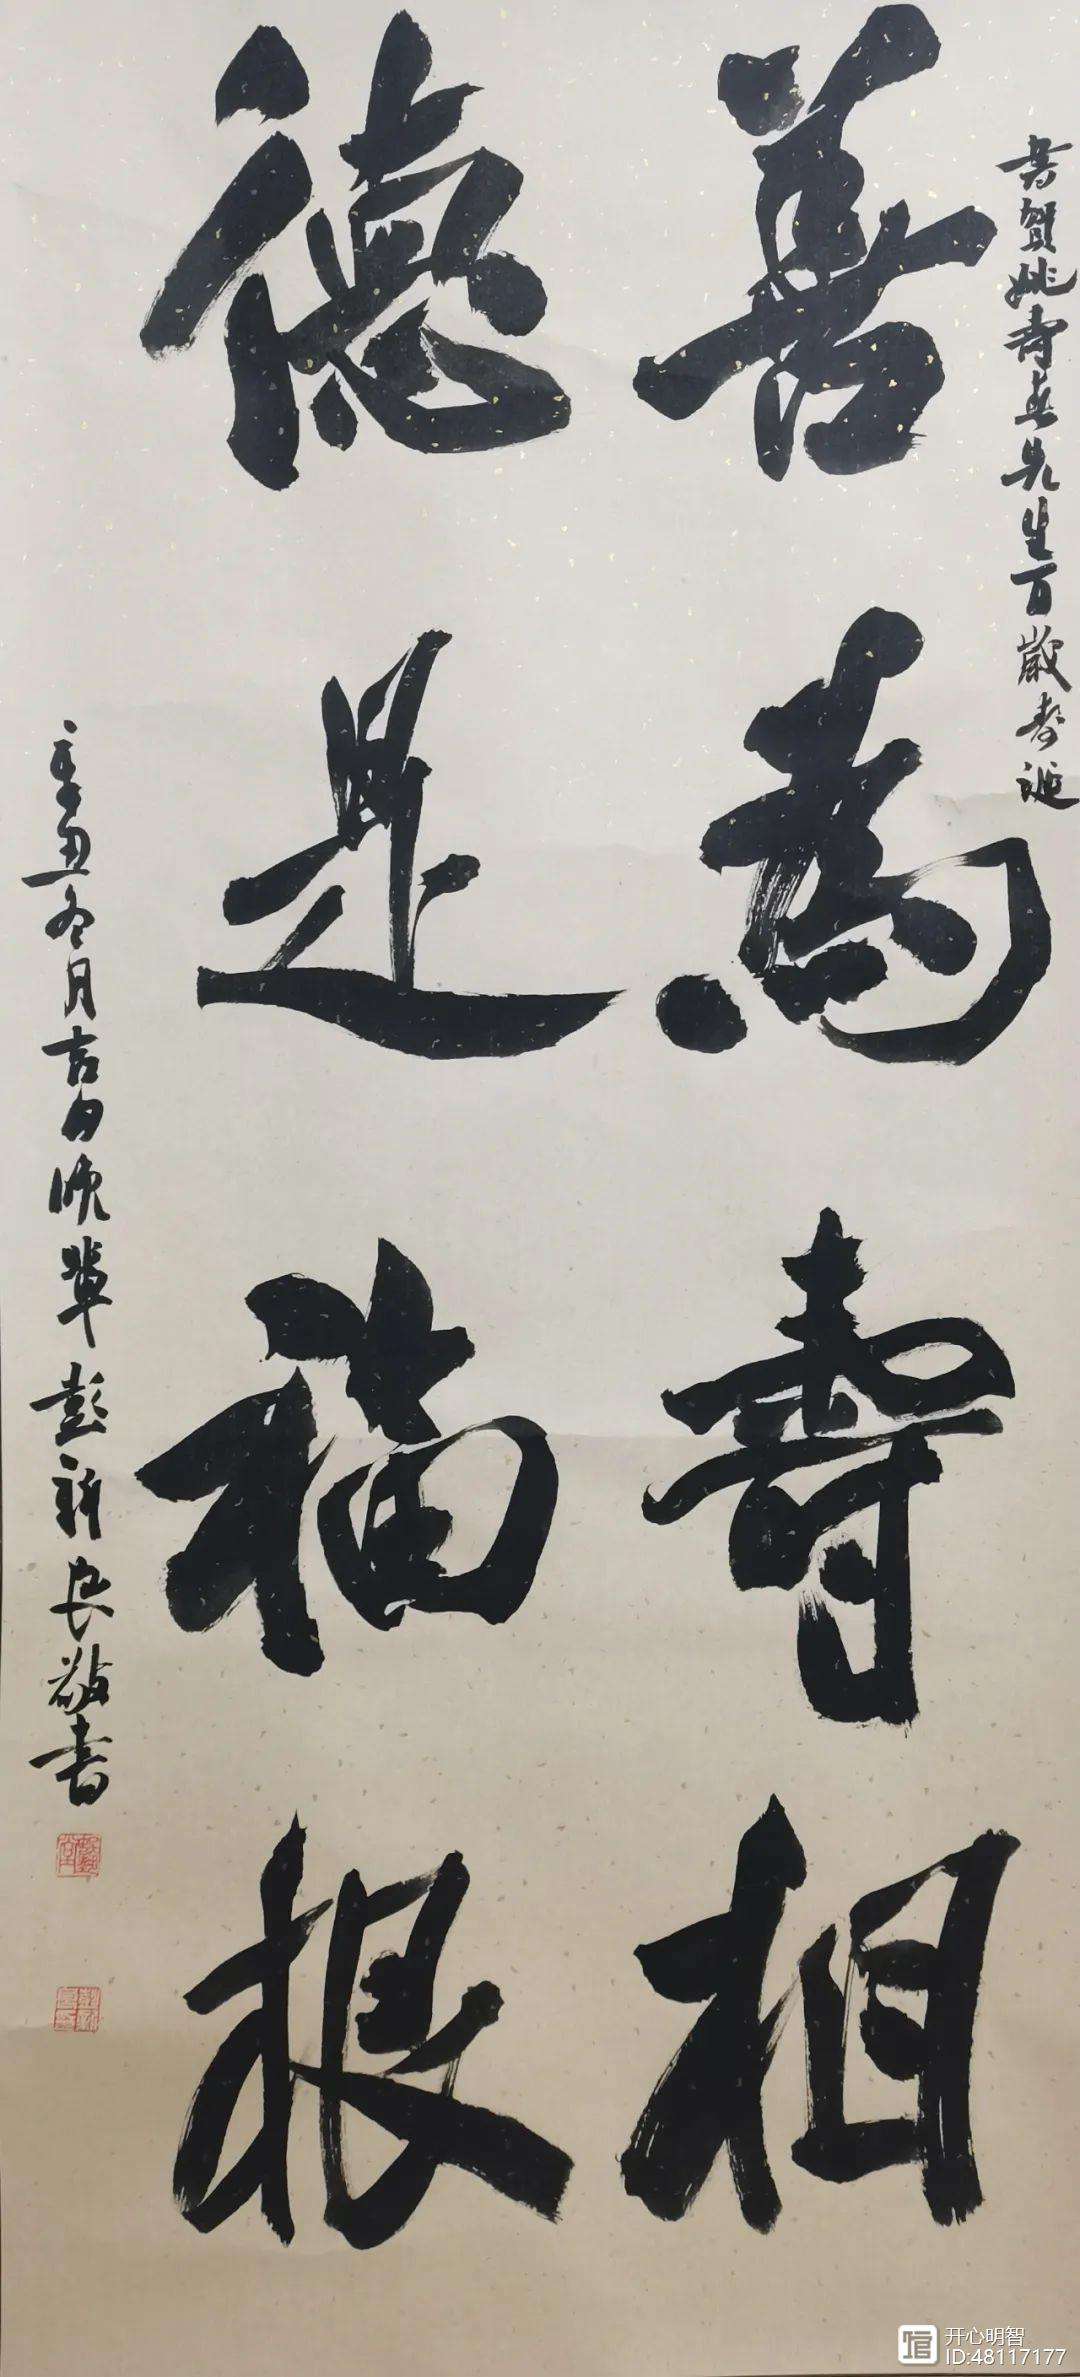 书贺姚寿真先生百岁寿诞
善为寿相
德是福根
辛丑冬月吉日晚辈彭祥良敬书
开心明智
ID:48117177